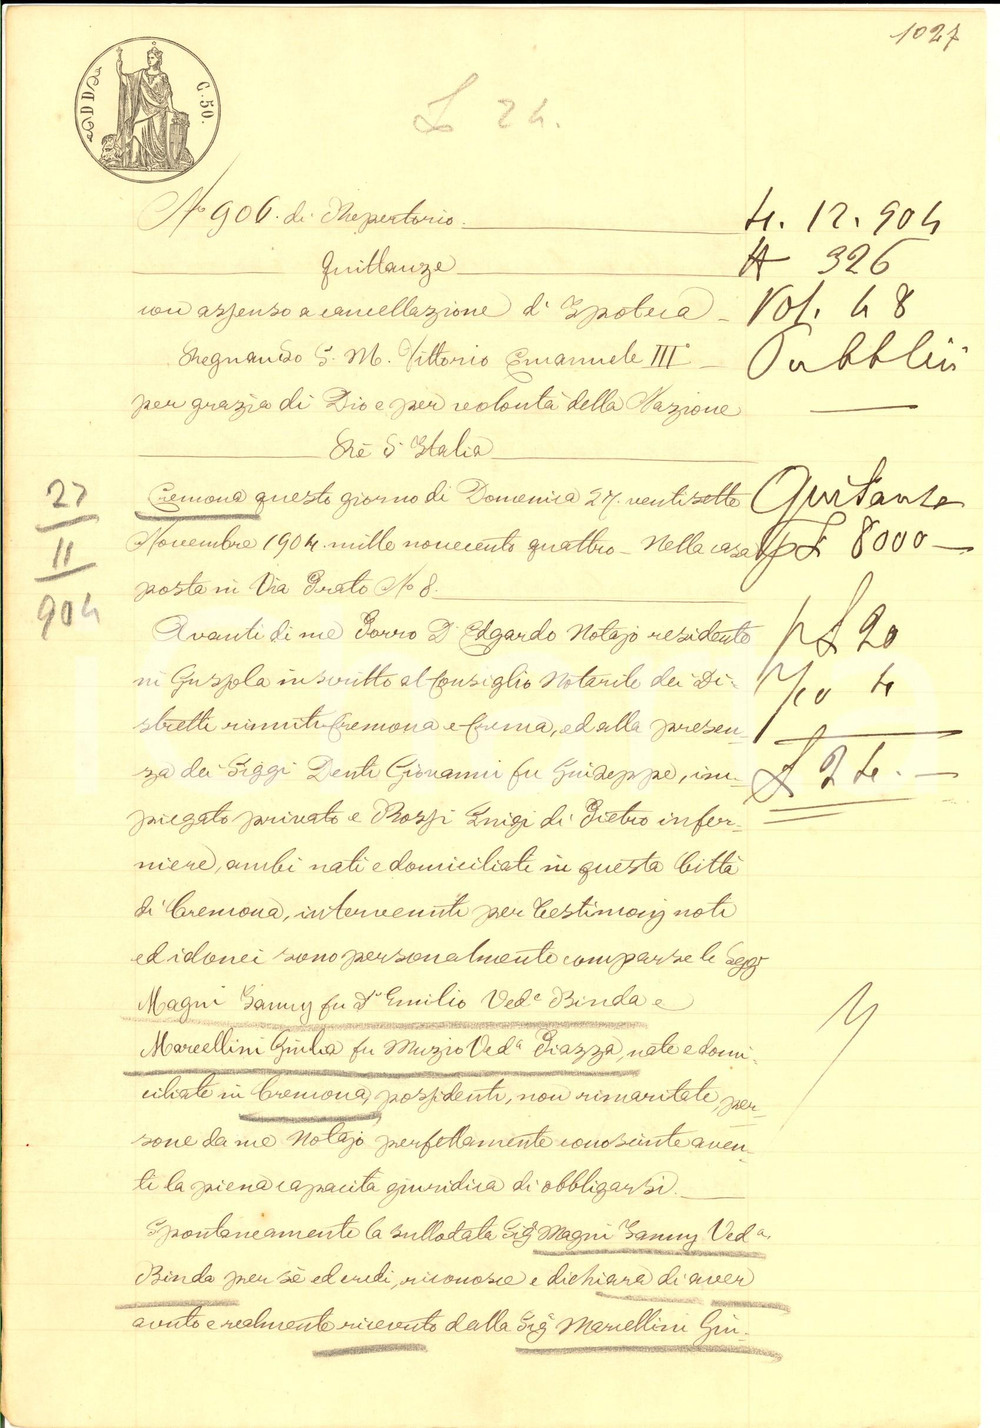 1027
C. 50.
£ 24.
N° 906. di Repertorio.
Quittanze
con assenso a cancellazione d' Ipoteca
Regnando S. M. Vittorio Emanuele III°
per grazia di Dio e per volontà della Nazione
Rè d'Italia
Cremona questo giorno di Domenica 27. ventisette
Novembre 1904. mille novecento quattro - Nella casa
posta in Via Prato N° 8.
Avanti di me Porro Dr Edgardo Notajo residente
in Gussola inscritto al Consiglio Notarile dei Di-
stretti riuniti Cremona e Crema, ed alla presen-
za dei Siggi Denti Giovanni fu Giuseppe, im-
piegato privato e Rossi Luigi di Pietro infer-
miere, ambi nati e domiciliati in questa Città
di Cremona, intervenuti per testimonj noti
ed idonei sono personalmente comparse le Sigg
Magni Fanny fu Dr Emilio Veda Binda e
Marcellini Giulia fu Muzio Veda Piazza, nate e domi-
ciliate in Cremona, possidenti, non rimaritate, per-
sone da me Notajo perfettamente conosciute aven-
ti la piena capacità giuridica di obbligarsi.
Spontaneamente la sullodata Sigª Magni Fanny Veda
Binda per sè ed eredi, riconosce e dichiara di aver
avuto e realmente ricevuto dalla Sigª Marcellini Giu-
4. 12. 904
N 326
Vol. 48
Pubblici
Quitanze
£ 8000 -
£ 20
4
£ 24. -
27
11
904